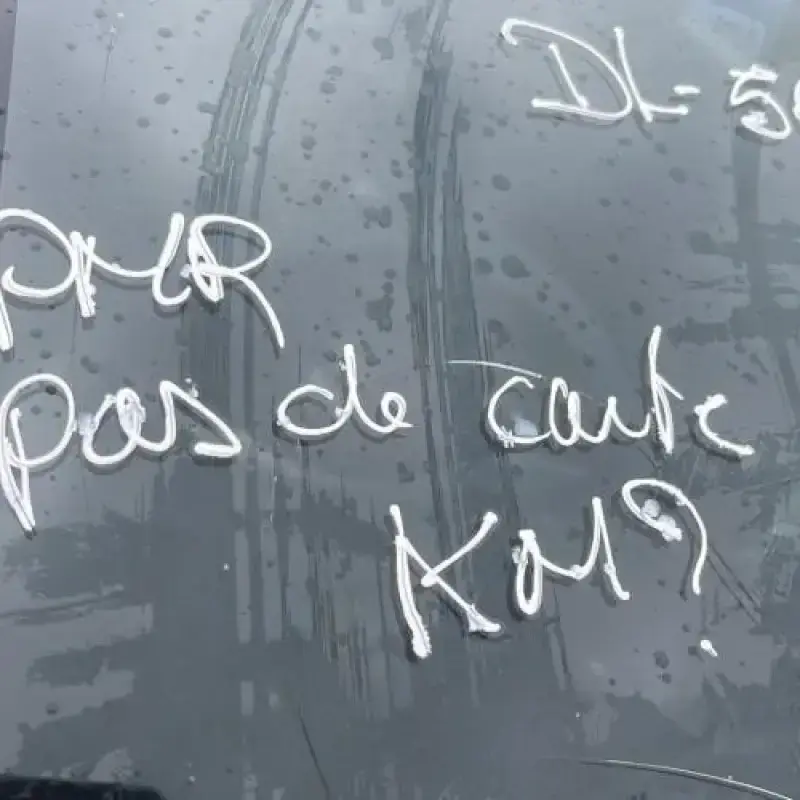 DL-50
PMR
pas de carte
KM?